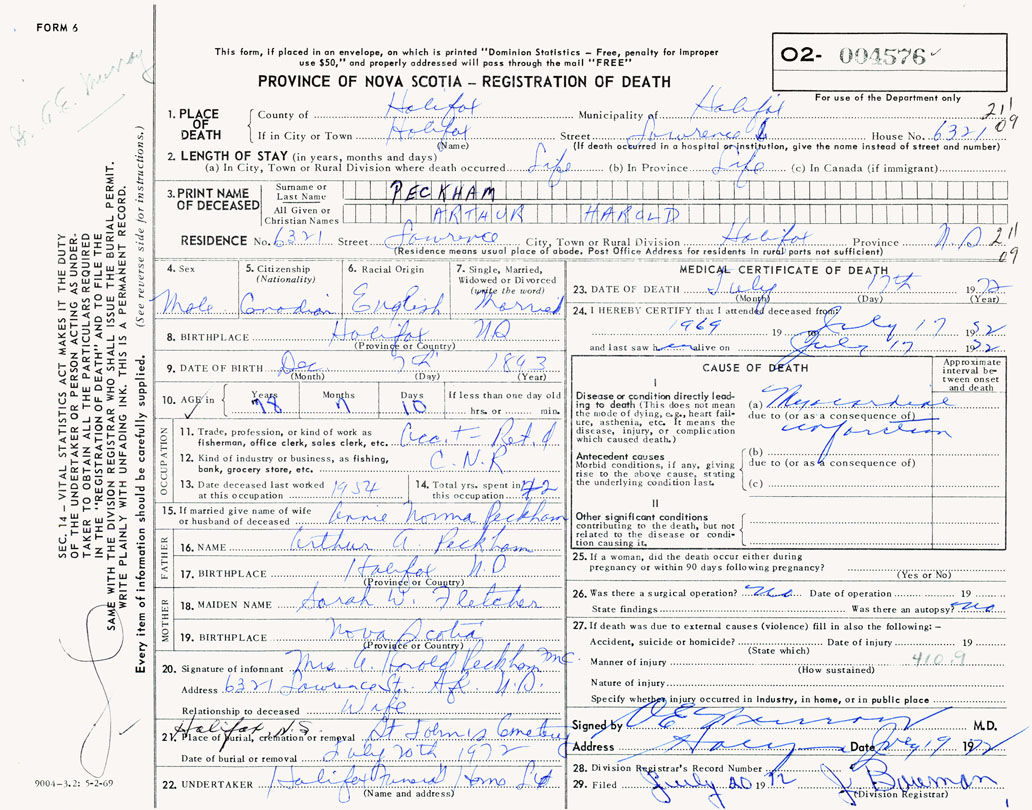 FORM 6
This form, if placed in an envelope, on which is printed "Dominion Statistics – Free, penalty for improper
use $50," and properly addressed will pass through the mail "FREE"
PROVINCE OF NOVA SCOTIA – REGISTRATION OF DEATH
O2- 004576
For use of the Department only
1. PLACE OF DEATH
County of Halifax Municipality of Halifax 211
If in City or Town Halifax Street Lawrence House No. 6321 09
(Name) (If death occurred in a hospital or institution, give the name instead of street and number)
2. LENGTH OF STAY (in years, months and days)
(a) In City, Town or Rural Division where death occurred Life (b) In Province Life (c) In Canada (if immigrant)
3. PRINT NAME OF DECEASED
Surname or Last Name PECKHAM
All Given or Christian Names ARTHUR HAROLD
RESIDENCE No. 6321 Street Lawrence City, Town or Rural Division Halifax Province N.S 211
09
(Residence means usual place of abode. Post Office Address for residents in rural parts not sufficient)
4. Sex
Male
5. Citizenship
(Nationality)
Canadian
6. Racial Origin
English
7. Single, Married,
Widowed or Divorced
(write the word)
Married
8. BIRTHPLACE Halifax NS
(Province or Country)
9. DATE OF BIRTH Dec 7th 1893
(Month) (Day) (Year)
10. AGE in
Years 78 Months 7 Days 10 If less than one day old
hrs. or min.
OCCUPATION
11. Trade, profession, or kind of work as
fisherman, office clerk, sales clerk, etc. Acc't - Ret'd
12. Kind of industry or business, as fishing,
bank, grocery store, etc. C.N.R
13. Date deceased last worked
at this occupation 1954
14. Total yrs. spent in
this occupation 42
15. If married give name of wife
or husband of deceased Annie Norma Peckham
FATHER
16. NAME Arthur A. Peckham
17. BIRTHPLACE Halifax N.S
(Province or Country)
MOTHER
18. MAIDEN NAME Sarah W. Fletcher
19. BIRTHPLACE Nova Scotia
(Province or Country)
20. Signature of informant Mrs A. Harold Peckham
Address 6321 Lawrence St. Hfx. N.S.
Relationship to deceased Wife
Halifax N.S
21. Place of burial, cremation or removal St John's Cemetery
Date of burial or removal July 20th 1972
22. UNDERTAKER Halifax Funeral Home Ltd
(Name and address)
MEDICAL CERTIFICATE OF DEATH
23. DATE OF DEATH July 17th 1972
(Month) (Day) (Year)
24. I HEREBY CERTIFY that I attended deceased from:
1969 19 July 17
and last saw alive on July 17
CAUSE OF DEATH
Approximate
interval be-
tween onset
and death
I
Disease or condition directly lead-
ing to death (This does not mean
the mode of dying, e.g., heart fail-
ure, asthenia, etc. It means the
disease, injury, or complication
which caused death.)
(a) Myocardial
due to (or as a consequence of)
infarction
Antecedent causes
Morbid conditions, if any, giving
rise to the above cause, stating
the underlying condition last.
(b)
due to (or as a consequence of)
(c)
II
Other significant conditions
contributing to the death, but not
related to the disease or condi-
tion causing it.
25. If a woman, did the death occur either during
pregnancy or within 90 days following pregnancy?
(Yes or No)
26. Was there a surgical operation? No Date of operation 19
State findings Was there an autopsy? No
27. If death was due to external causes (violence) fill in also the following: –
Accident, suicide or homicide? Date of injury 19
(State which)
Manner of injury 410.9
(How sustained)
Nature of injury
Specify whether injury occurred in industry, in home, or in public place
Signed by M.D.
Address Date 19 1972
28. Division Registrar's Record Number
29. Filed July 20 1972 J. Bauman
(Division Registrar)
SEC. 14 – VITAL STATISTICS ACT MAKES IT THE DUTY
OF THE UNDERTAKER OR PERSON ACTING AS UNDER-
TAKER TO OBTAIN ALL THE PARTICULARS REQUIRED
IN THE "REGISTRATION OF DEATH" AND TO FILE THE
SAME WITH THE DIVISION REGISTRAR WHO SHALL ISSUE THE BURIAL PERMIT.
WRITE PLAINLY WITH UNFADING INK. THIS IS A PERMANENT RECORD.
Every item of information should be carefully supplied. (See reverse side for instructions.)
Murray
9004–3.2: 5-2-69